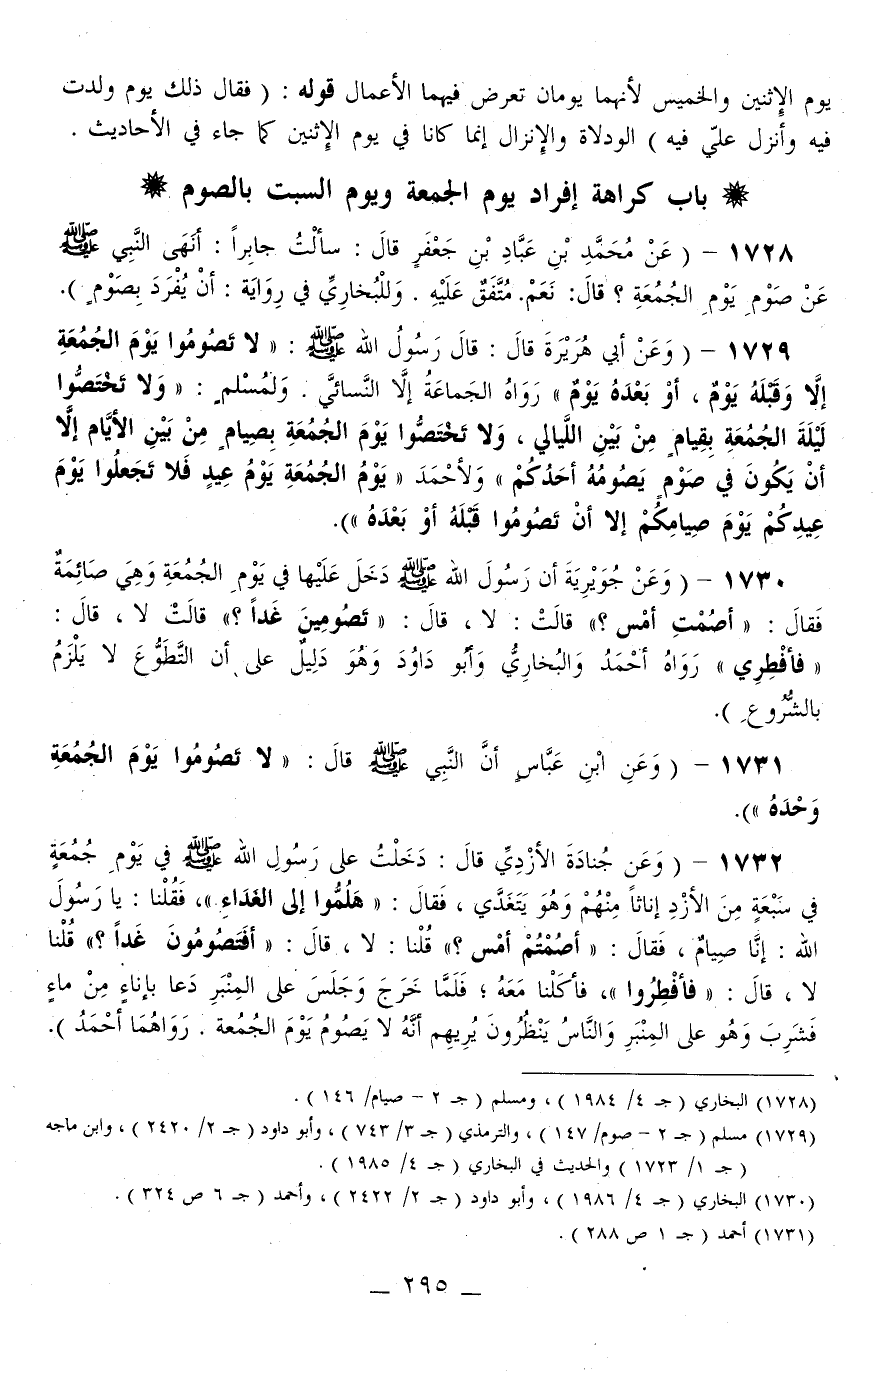 يوم الإثنين والخميس لأنهما يومان تعرض فيهما الأعمال قوله : ( فقال ذلك يوم ولدت
فيه وأنزل عليّ فيه ) الودلاة والإنزال إنما كانا في يوم الإثنين كما جاء في الأحاديث .
باب كراهة إفراد يوم الجمعة ويوم السبت بالصوم
١٧٢٨ - ( عَنْ مُحَمَّدِ بْنِ عَبَّادِ بْنِ جَعْفَرٍ قالَ : سألْتُ جابِراً : أنَهَى النَّبِي ﷺ
عَنْ صَوْمِ يَوْمِ الجُمُعَةِ ؟ قالَ: نَعَمْ. مُتَّفَقٌ عَلَيْهِ . وَللْبُخارِيِّ في رِوَايَة : أنْ يُفْرَدَ بِصَوْمٍ ).
١٧٢٩ - ( وَعَنْ أبي هُرَيْرَةَ قالَ : قالَ رَسُولُ الله ﷺ : « لا تَصُومُوا يَوْمَ الجُمُعَةِ
إلَّا وَقَبْلَهُ يَوْمٌ ، أوْ بَعْدَهُ يَوْمٌ » رَوَاهُ الجَماعَةُ إلَّا النَّسائيَّ . وَلمُسْلمٍ : « وَلا تَخْتَصُّوا
لَيْلَةَ الجُمُعَةِ بِقِيامٍ مِنْ بَيْنِ اللَّيالي ، وَلا تَخْتَصُّوا يَوْمَ الجُمُعَةِ بِصِيامٍ مِنْ بَيْنِ الأيَّام إلَّا
أنْ يَكُونَ في صَوْمٍ يَصُومُهُ أحَدُكُمْ » وَلأحْمَدَ « يَوْمُ الجُمُعَةِ يَوْمُ عِيدٍ فَلا تَجعَلُوا يَوْمَ
عِيدِكُمْ يَوْمَ صِيامِكُمْ إلا أنْ تَصُومُوا قَبْلَهُ أوْ بَعْدَهُ »).
١٧٣٠ - ( وَعَنْ جُوَيْرِيَةَ أن رَسُولَ الله ﷺ دَخَلَ عَلَيْها في يَوْمِ الجُمُعَةِ وَهِيَ صَائِمَةٌ
فَقالَ : « أصُمْتِ أمْس ؟» قالَتْ : لا ، قال : « تَصُومِينَ غَداً ؟» قالَتْ لا ، قال :
« فأفْطِرِي » رَوَاهُ أحْمَدُ وَالبُخاريُّ وَأبُو دَاوُدَ وَهُوَ دَلِيلٌ على أن التَّطَوُّعَ لا يَلْزَمُ
بالشُّرُوعِ ).
١٧٣١ - ( وَعَنِ ابْنِ عَبَّاسٍ أنَّ النَّبِي ﷺ قالَ : « لا تَصُومُوا يَوْمَ الجُمُعَةِ
وَحْدَهُ »).
١٧٣٢ - ( وَعَن جُنادَةَ الأزْدِيِّ قالَ : دَخَلْتُ على رَسُولِ الله ﷺ في يَوْمِ جُمُعَةٍ
في سَبْعَةٍ مِنَ الأزْدِ إناثاً مِنْهُمْ وَهُوَ يَتَغَدَّي ، فَقالَ : « هَلُمُّوا إلى الغَدَاءِ »، فَقُلْنا : يا رَسُولَ
الله : إنَّا صِيامٌ ، فَقالَ : « أصُمْتُمْ أمْس ؟» قُلْنا : لا ، قال : « أفَتَصُومُونَ غَداً ؟» قُلْنا
لا ، قالَ : « فأفْطِرُوا »، فأكَلْنا مَعَهُ ؛ فَلَمَّا خَرَجَ وَجَلَسَ على المِنْبَرِ دَعا بإناءٍ مِنْ ماءٍ
فَشَرِبَ وَهُو على المِنْبَرِ وَالنَّاسُ يَنْظُرُونَ يُريهِم أنَّهُ لا يَصُومُ يَوْمَ الجُمُعة . رَوَاهُمَا أحْمَدُ ).
(١٧٢٨) البخاري ( جـ ٤/ ١٩٨٤ ) ، ومسلم ( جـ ٢ - صيام/ ١٤٦ ) .
(١٧٢٩) مسلم ( جـ ٢ - صوم/ ١٤٧ ) ، والترمذي ( جـ ٣/ ٧٤٣ ) ، وأبو داود ( جـ ٢/ ٢٤٢٠ ) ، وابن ماجه
( جـ ١/ ١٧٢٣ ) والحديث في البخاري ( جـ ٤/ ١٩٨٥ ) .
(١٧٣٠) البخاري ( جـ ٤/ ١٩٨٦ ) ، وأبو داود ( جـ ٢/ ٢٤٢٢ ) ، وأحمد ( جـ ٦ ص ٣٢٤ ) .
(١٧٣١) أحمد ( جـ ١ ص ٢٨٨ ) .
ــ ٢٩٥ ــ